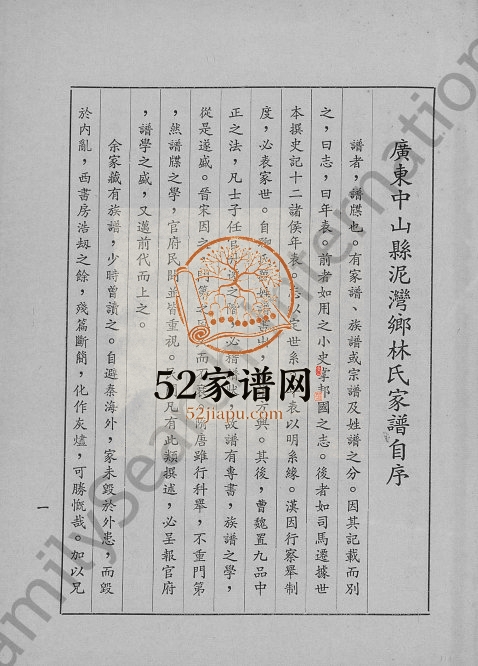 廣東中山縣泥灣鄉林氏家譜自序
譜者,譜牒也。有家譜、族譜或宗譜及姓譜之分。因其記載而別
之,曰志,曰年表。前者如用之小史掌邦國之志。後者如司馬遷據世
本撰史記十二諸侯年表。 以定世系 年表以明系緣。漢因行察舉制
度,必表家世。自 興。其後,曹魏置九品中
正之法,凡士子任官 必 故譜有專書,族譜之學,
從是遂盛。晉宋因之 門第之 而 隋唐雖行科舉,不重門第
,然譜牒之學,官府民間並皆重視。 凡有此類撰述,必呈報官府
,譜學之盛,又邁前代而上之。
余家藏有族譜,少時曾讀之。自避秦海外,家未毀於外患,而毀
於内亂,西書房浩劫之餘,殘篇斷簡,化作灰燼,可勝慨哉。加以兄
一
52家谱网
52jiapu.com
FamilySearch International